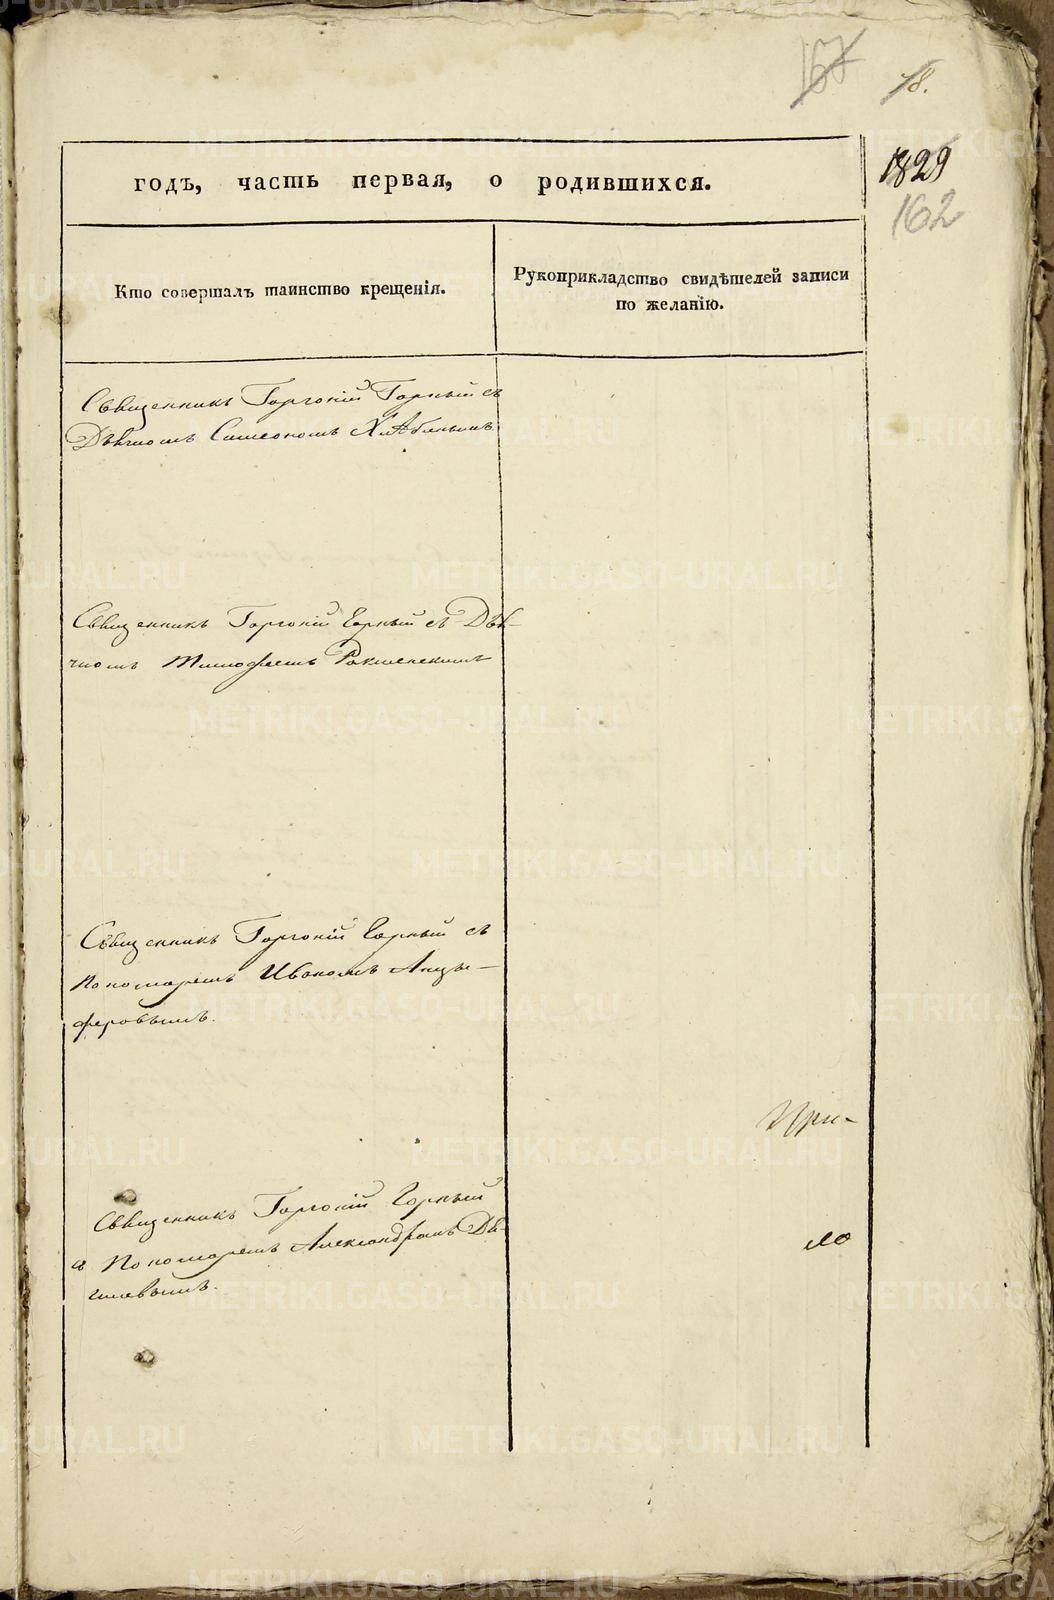 157
78.
годъ, часть первая, о родившихся.
1829
162
Кто совершалъ таинство крещенія.
Рукоприкладство свидѣтелей записи
по желанію.
Священникъ Горгоній Горный съ
Дьячкомъ Симеономъ
Священникъ Горгоній Горный съ Дьяч-
комъ Тимофеемъ
Священникъ Горгоній Горный съ
Пономаремъ Иваномъ Анцы-
феровымъ.
При-
Священникъ Горгоній Горный
съ Пономаремъ Александромъ Дя-
гилевымъ.
ло
METRIKI.GASO-URAL.RU